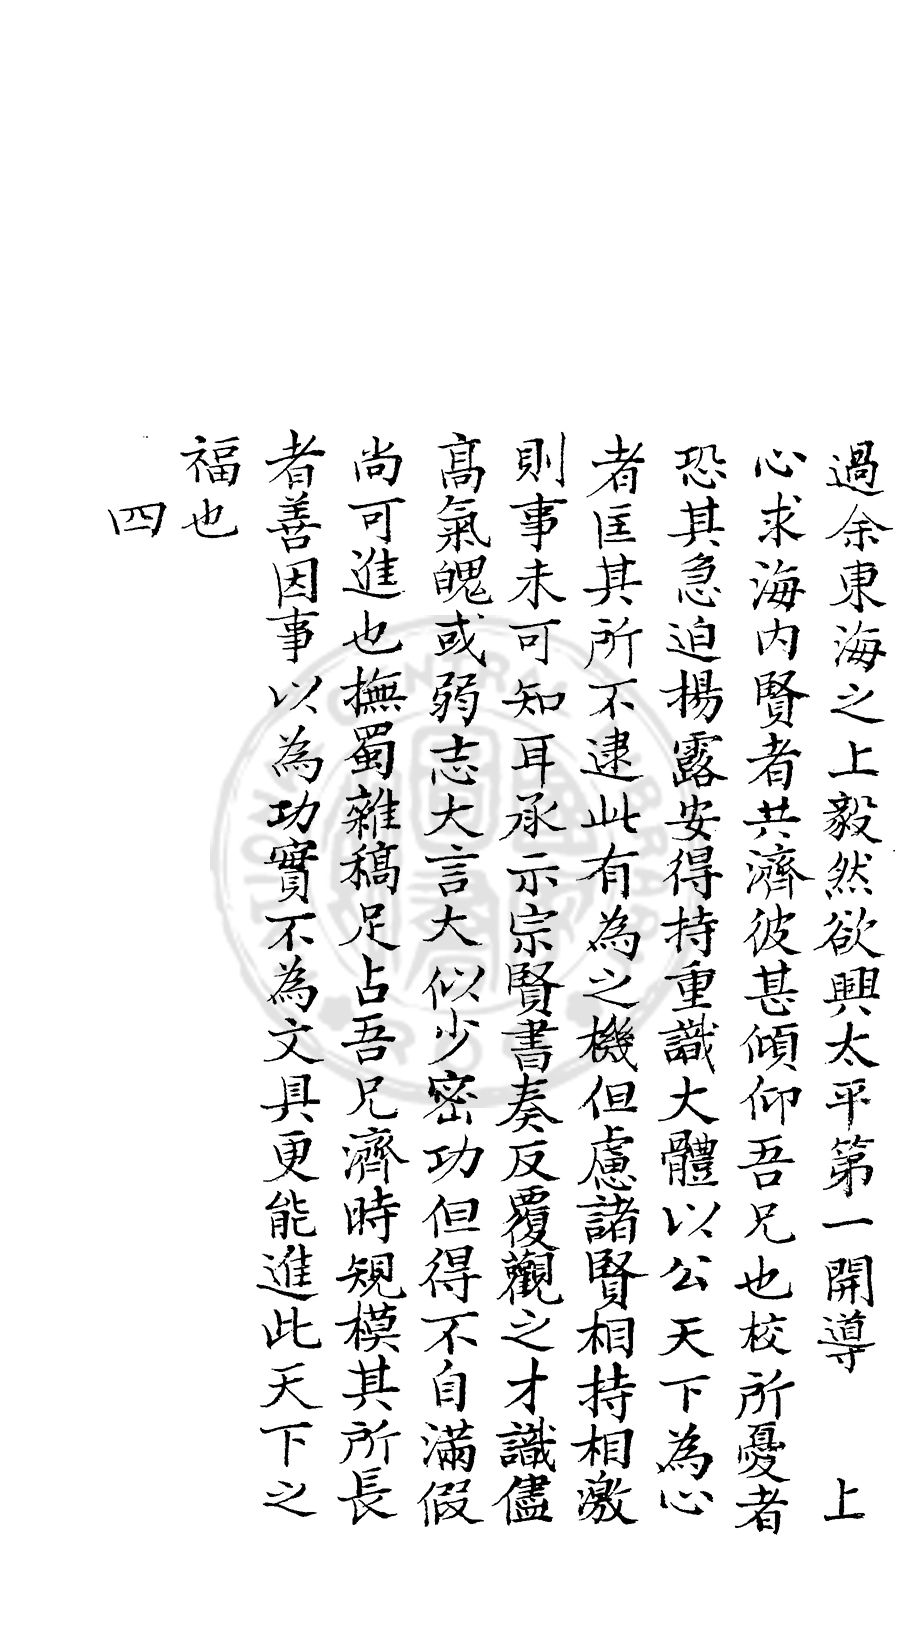 過余東海之上毅然欲興太平第一開導　上
心求海内賢者共濟彼甚傾仰吾兄也校所憂者
恐其急迫揚露安得持重識大體以公天下為心
者匡其所不逮此有為之機但慮諸賢相持相激
則事未可知耳承示宗賢書奏反覆觀之才識儘
髙氣魄或弱志大言大似少密功但得不自滿假
尚可進也撫蜀雜稿足占吾兄濟時規模其所長
者善因事以為功實不為文具更能進此天下之
福也
四